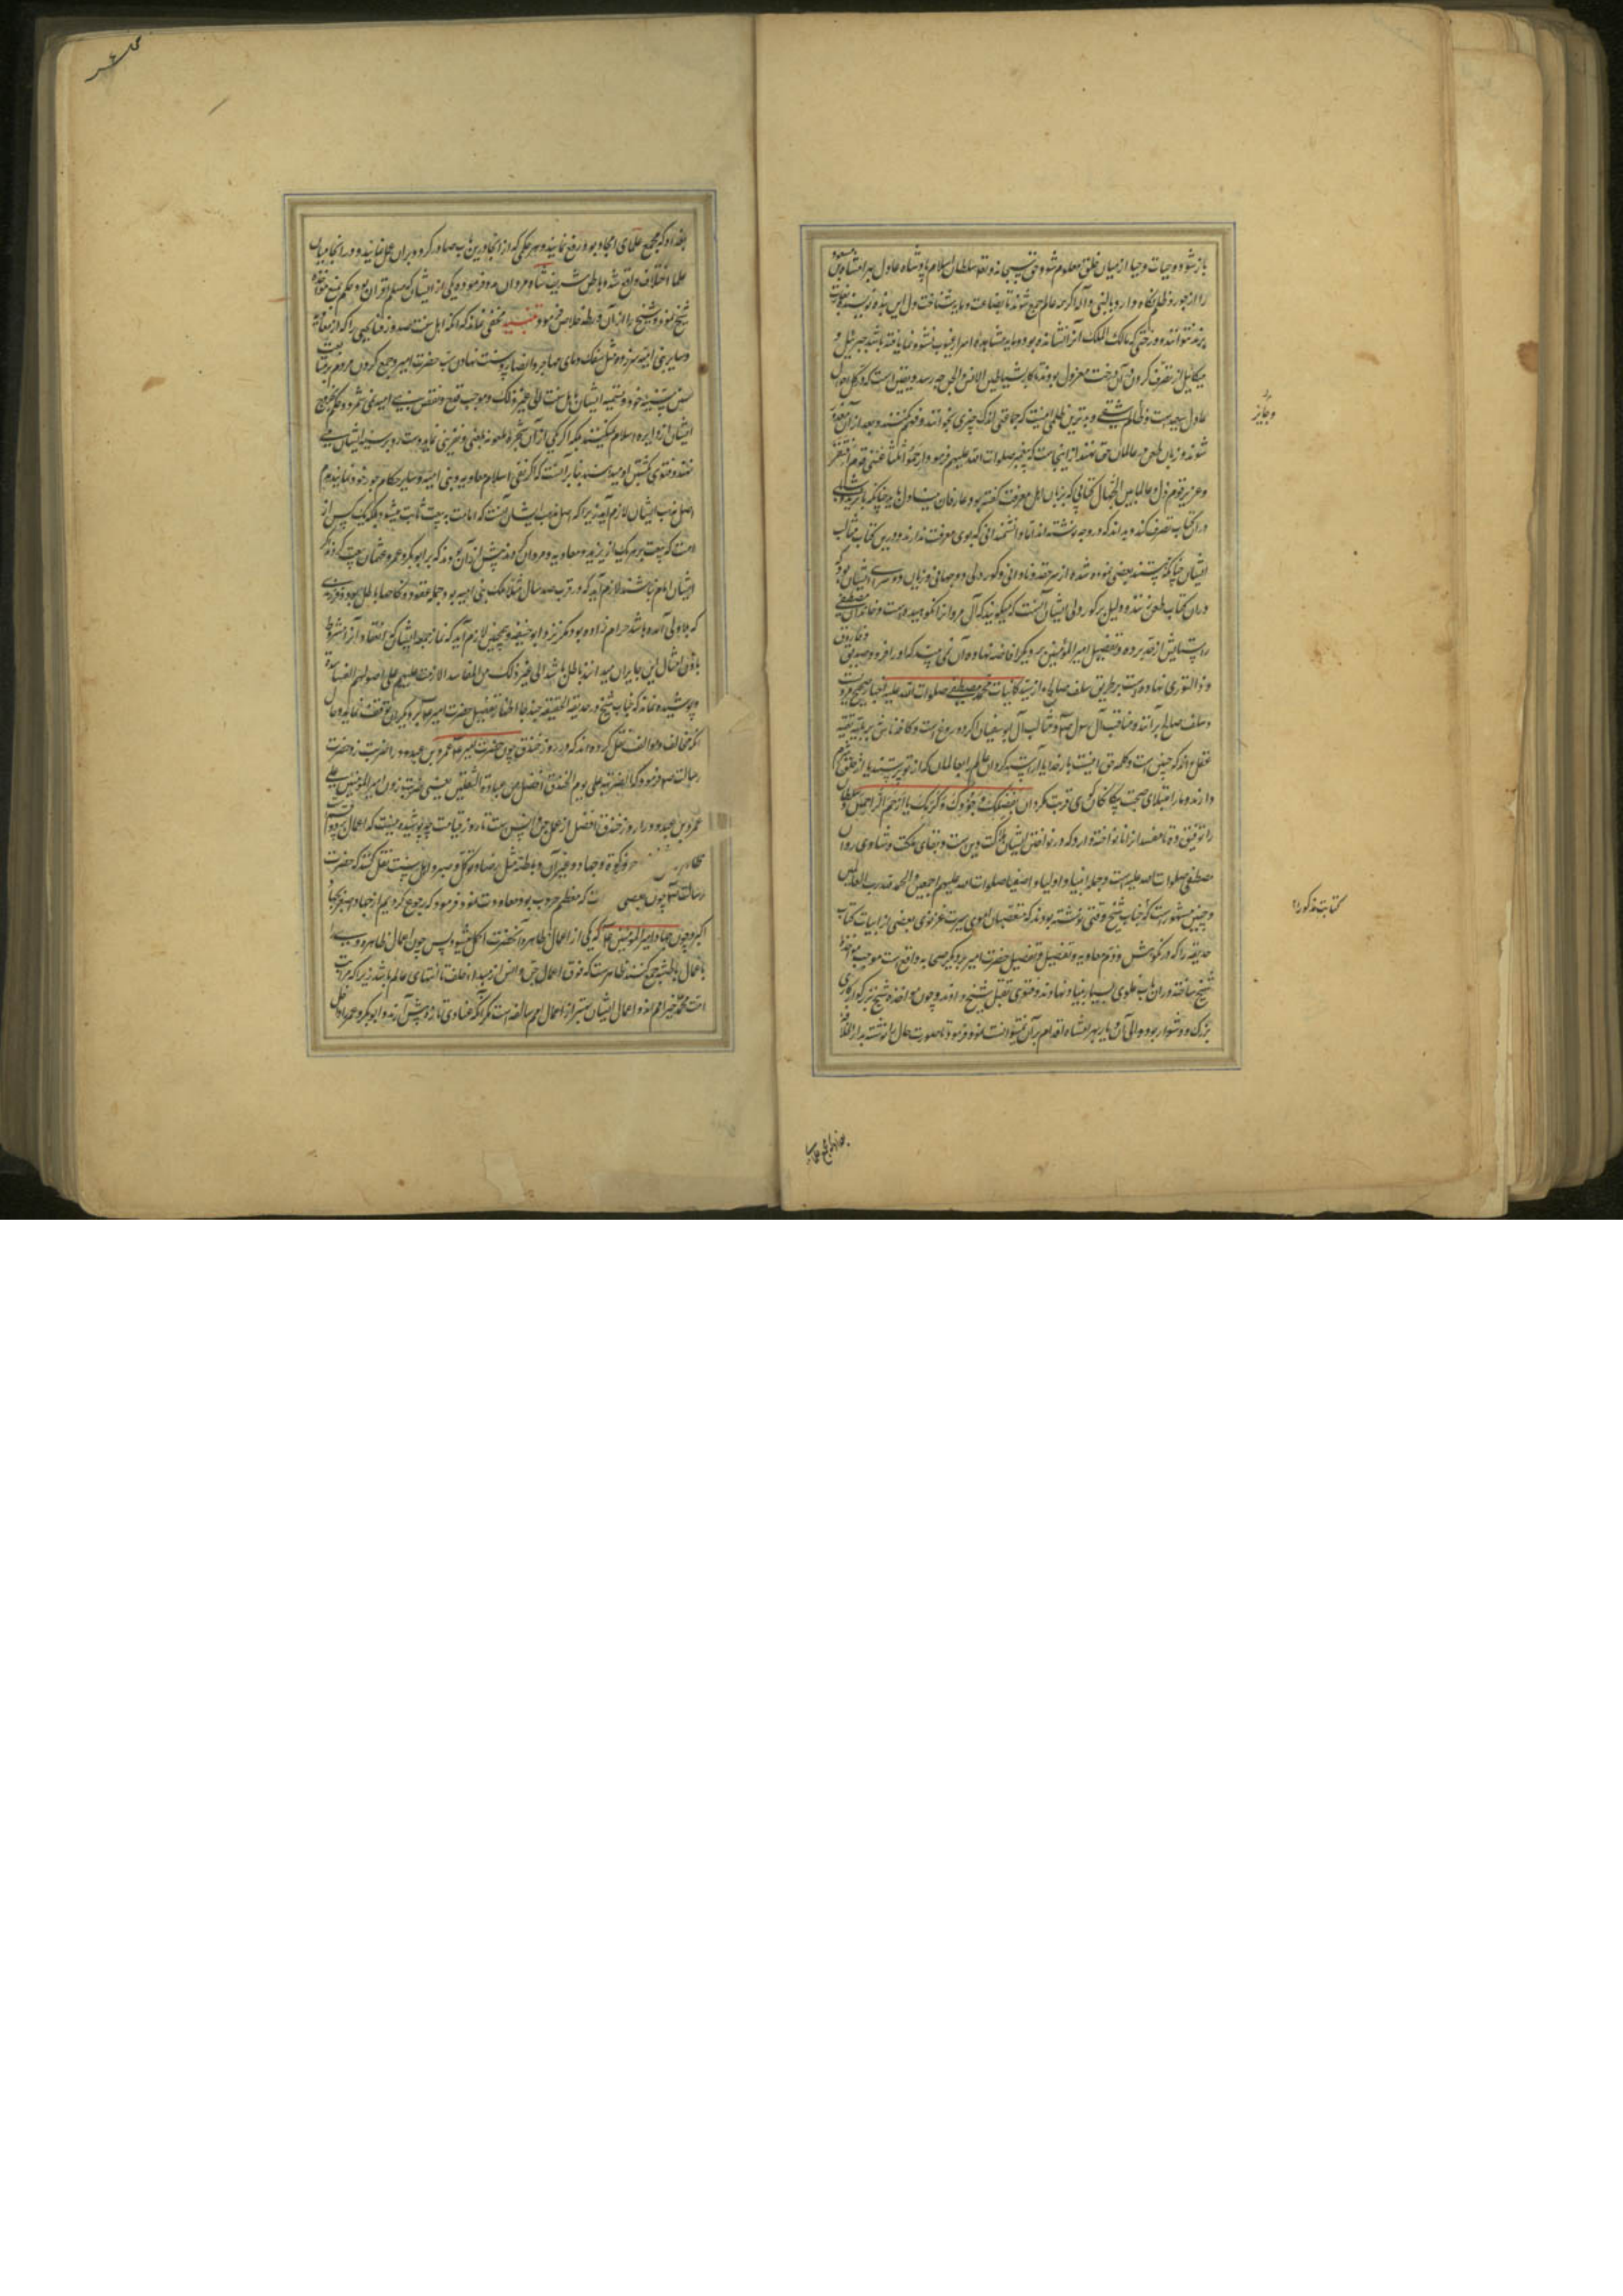 باز شود و حیات و حیا از میان خلق معلوم شود حق سبحانه و تعالی سلطان اسلام پادشاه عادل بهرامشاه بن مسعود
را از جور و ظلم نگاه دارد بالنبی و آله اگر همه عالم جمع شوند تا بضاعت و مایه شناخت دل این بنده
بزند نتوانند و درختی که مالک الملک آنرا نشانده بود و مایه مشاهده اسرار غیوب نشو و نما یافته باشد جبرئیل و
میکائیل از تصرف کردن در آن درخت معزول بوند تا کار شیاطین الانس و الجن چه رسد و یقین است که در کل احوال
عادل سعید است و ظالم شقی و بدترین ظلمی اینست که جماعتی اندک چیزی بخوانند و فهم نکنند و بعد از آن مغرور
شوند و زبان طعن در عالمان حق نهند از اینجاست که پیغمبر صلوات الله علیهم فرمود ارحموا ثلثا غنی قوم افتقر
و عزیز قوم ذل و عالما بین الجهال کتابی که بزبان اهل معرفت گفته بود و عارفان
در آن کتاب تصرف کند و بداند که در وجه نوشته اند اما دانشمندانی که بوی معرفت ندارند و درین کتاب مثالب
ایشان چنانکه پسند بعضی نموده شده از سر حقد و نادانی و کور دلی و زبان
در آن کتاب طعن زنند و دلیل بر کور دلی ایشان آنست که میگویند که آل مروان را نکوهیده است و خاندان مصطفی
را ستایش از حد برده و تفضیل امیر المؤمنین بر دیگر افاضه نهاده آن نمی بینند که او را فرود صدیق و فاروق
و ذا النوری نهاده است بر طریق سلف صالح و از سید کاینات محمد مصطفی صلوات الله علیه اخبار صحیح مرویست
و سلف صالح بر آنند و مناقب آل رسول و مثالب آل بوسفیان اگر دروغ است
عقل داند که چنین است و کلمه حق اینست بار خدایا
دارند و ما را مبتلای صحبت بیگانگان کوی قربت مگردان بفضلک و جودک و کرمک یا ارحم الراحمین و سلطان
را توفیق ده تا مفسدان را نواخته دارد که در نواختن ایشان دین است و بقای مملکت و شادی روان
مصطفی صلوات الله علیه است و جمله انبیا و اولیا و اصفیا صلوات الله علیهم اجمعین و الحمد لله رب العالمین
و چنین مشهور است که جناب شیخ وقتی نوشته بودند که متعصبان اموی سیرت غزنوی بعضی از ابیات کتاب
حدیقه را که در نکوهش و ذم معاویه و تفضیل و تفضیل حضرت امیر بر دیگر صحابه واقع است موجب مؤاخذه
شیخ ساخته در آن باب غلوی بسیار بنیاد نهادند و فتوی بقتل شیخ دادند و چون مؤاخذه شیخ بزرگوار کاری
بزرگ و دشوار بود والی آن دیار بهرامشاه اقدام بر آن نتوانست نمود و فرمود تا صورت حال را نوشته بدار الخلافه
و جایز
کتابت مذکور را
بغداد که مجمع علمای امجاد بود رفع نمایند و هر حکمی که از آنجا درین باب صادر گردد بر آن عمل نمایند و در آنجا میان
علما اختلاف واقع شده باطن شریف شاه مردان مدد فرموده یکی از ایشان که مسلم اقران بود حکم بمنع مؤاخذه
شیخ نمود و شیخ را از آن ورطه خلاص فرمود تنبیه مخفی نماند که آنکه اهل سنت صدور قبایحی را که از معاویه
و سایر بنی امیه سر زده مثل سفک دمای مهاجر و انصار و سنت نهادن سب حضرت امیر و جمع کردن مردم بر متابعت
سنن سیئه خود و تسمیه ایشان باهل سنت الی غیر ذلک موجب قدح و نقص بنی امیه نمی شمرد و حکم بخروج
ایشان از دایره اسلام نمیکنند بلکه اگر کسی از آن شجره ملعونه بغضی و تبری نماید دست رد بر سینه ایشان می
نهند و فتوی بکشتن او میدهند بنا بر آنست که اگر نفی اسلام معاویه و بنی امیه و سایر حکام جور خود نمایند هدم
اصل مذهب ایشان لازم آید زیرا که اصل مذهب ایشان آنست که امامت به بیعت ثابت میشود بلکه یک کس از
امت که بیعت بر هر یک از یزید و معاویه و مروان کردند بیش از آن بودند که بر ابوبکر و عمر و عثمان بیعت کردند اگر
ایشان امام نباشند لازم آید که در قرب صد سال مثلا ملک بنی امیه بود جمله عقود و نکاحها باطل بود و فرزندی
که بدان والی آمده باشد حرام زاده بود مگر نزد ابو حنیفه و همچنین لازم آید که نماز جمعه ایشان که انعقاد آنرا مشروط
باذن امثال این جایران میدانند باطل باشد الی غیر ذلک من المفاسد اللازمة علیهم علی اصولهم الفاسدة
و پوشیده نماند که جناب شیخ در حدیقة الحقیقه چند جا اظهار تفضیل حضرت امیر بر دیگران
آنکه مخالف و مؤالف نقل کرده اند که در روز خندق چون حضرت امیر عمرو بن عبدود را ضربت زد حضرت
رسالت فرمود که لضربة علی یوم الخندق افضل من عبادة الثقلین یعنی ضربت زدن امیر المؤمنین علی
عمرو بن عبدود را روز خندق افضل از عمل جن و انس است تا روز قیامت چه پوشیده نیست که اعمال بر دو قسم است
ظاهر و زکوة و جهاد و غیر آن و باطنه مثل رضا و توکل و صبر و اهل سنت نقل کنند که حضرت
رسالت چون بعضی که معظم حروب بود معاودت نمود فرمود که رجوع کردیم از جهاد اصغر بجهاد
اکبر و چون جهاد امیر المؤمنین که یکی از اعمال ظاهره آنحضرت اکمل میشود پس چون اعمال ظاهره
با اعمال باطنه جمع کنند ظاهر است که فوق اعمال جن و انس از مبدء خلقت تا انتهای عالم باشد زیرا که مرتبت
امت محمد خیر امم اند و اعمال ایشان بهتر از اعمال امم سالفه است مگر آنکه عنادی تازه پیش آرند و ابوبکر و عمر را داخل